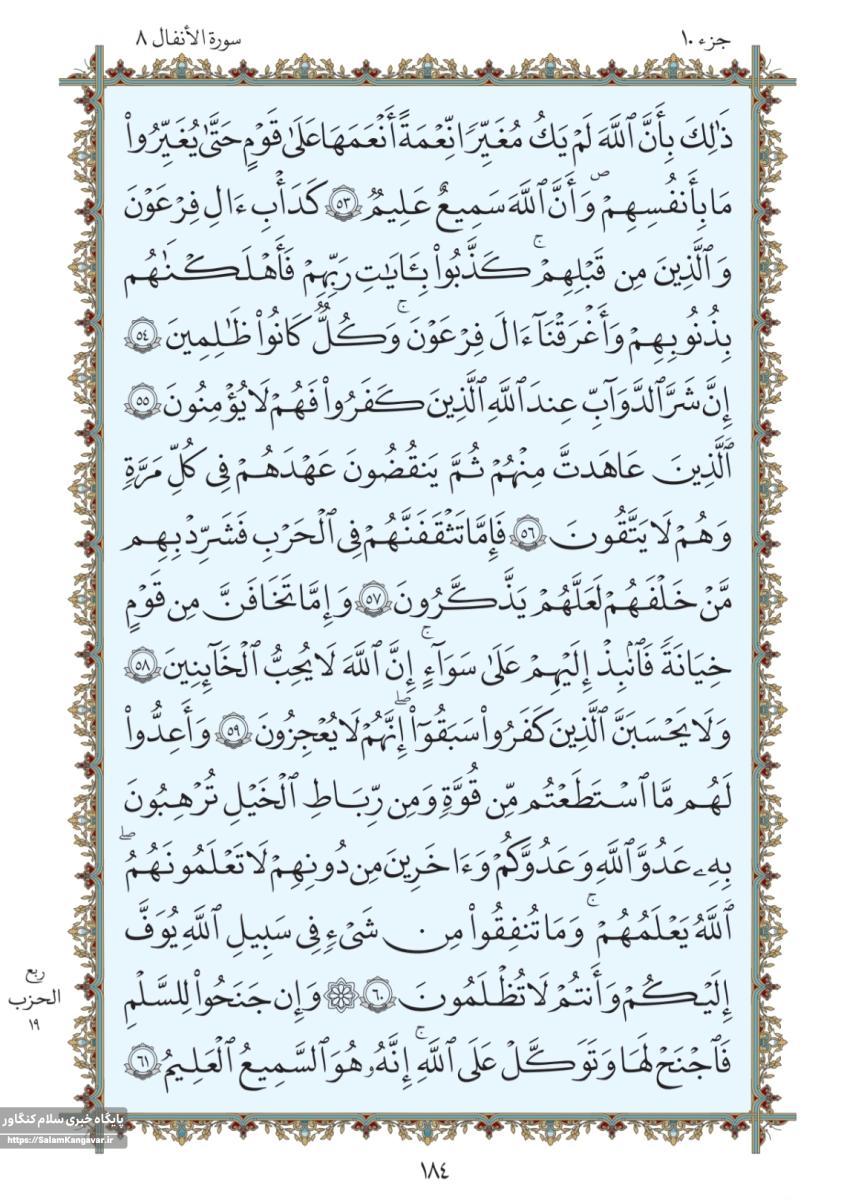 جزء ١٠
سورة الأنفال ٨
ذَٰلِكَ بِأَنَّ ٱللَّهَ لَمْ يَكُ مُغَيِّرًا نِّعْمَةً أَنْعَمَهَا عَلَىٰ قَوْمٍ حَتَّىٰ يُغَيِّرُوا۟
مَا بِأَنفُسِهِمْ ۙ وَأَنَّ ٱللَّهَ سَمِيعٌ عَلِيمٌ ٥٣ كَدَأْبِ ءَالِ فِرْعَوْنَ
وَٱلَّذِينَ مِن قَبْلِهِمْ ۚ كَذَّبُوا۟ بِـَٔايَـٰتِ رَبِّهِمْ فَأَهْلَكْنَـٰهُم
بِذُنُوبِهِمْ وَأَغْرَقْنَآ ءَالَ فِرْعَوْنَ ۚ وَكُلٌّ كَانُوا۟ ظَـٰلِمِينَ ٥٤
إِنَّ شَرَّ ٱلدَّوَآبِّ عِندَ ٱللَّهِ ٱلَّذِينَ كَفَرُوا۟ فَهُمْ لَا يُؤْمِنُونَ ٥٥
ٱلَّذِينَ عَـٰهَدتَّ مِنْهُمْ ثُمَّ يَنقُضُونَ عَهْدَهُمْ فِى كُلِّ مَرَّةٍ
وَهُمْ لَا يَتَّقُونَ ٥٦ فَإِمَّا تَثْقَفَنَّهُمْ فِى ٱلْحَرْبِ فَشَرِّدْ بِهِم
مَّنْ خَلْفَهُمْ لَعَلَّهُمْ يَذَّكَّرُونَ ٥٧ وَإِمَّا تَخَافَنَّ مِن قَوْمٍ
خِيَانَةً فَٱنۢبِذْ إِلَيْهِمْ عَلَىٰ سَوَآءٍ ۚ إِنَّ ٱللَّهَ لَا يُحِبُّ ٱلْخَآئِنِينَ ٥٨
وَلَا يَحْسَبَنَّ ٱلَّذِينَ كَفَرُوا۟ سَبَقُوٓا۟ ۚ إِنَّهُمْ لَا يُعْجِزُونَ ٥٩ وَأَعِدُّوا۟
لَهُم مَّا ٱسْتَطَعْتُم مِّن قُوَّةٍ وَمِن رِّبَاطِ ٱلْخَيْلِ تُرْهِبُونَ
بِهِۦ عَدُوَّ ٱللَّهِ وَعَدُوَّكُمْ وَءَاخَرِينَ مِن دُونِهِمْ لَا تَعْلَمُونَهُمُ ۖ
ٱللَّهُ يَعْلَمُهُمْ ۚ وَمَا تُنفِقُوا۟ مِن شَىْءٍ فِى سَبِيلِ ٱللَّهِ يُوَفَّ
إِلَيْكُمْ وَأَنتُمْ لَا تُظْلَمُونَ ٦٠ ۞ وَإِن جَنَحُوا۟ لِلسَّلْمِ
فَٱجْنَحْ لَهَا وَتَوَكَّلْ عَلَى ٱللَّهِ ۚ إِنَّهُۥ هُوَ ٱلسَّمِيعُ ٱلْعَلِيمُ ٦١
ربع
الحزب
١٩
پایگاه خبری سلام کنگاور
https://SalamKangavar.ir
١٨٤